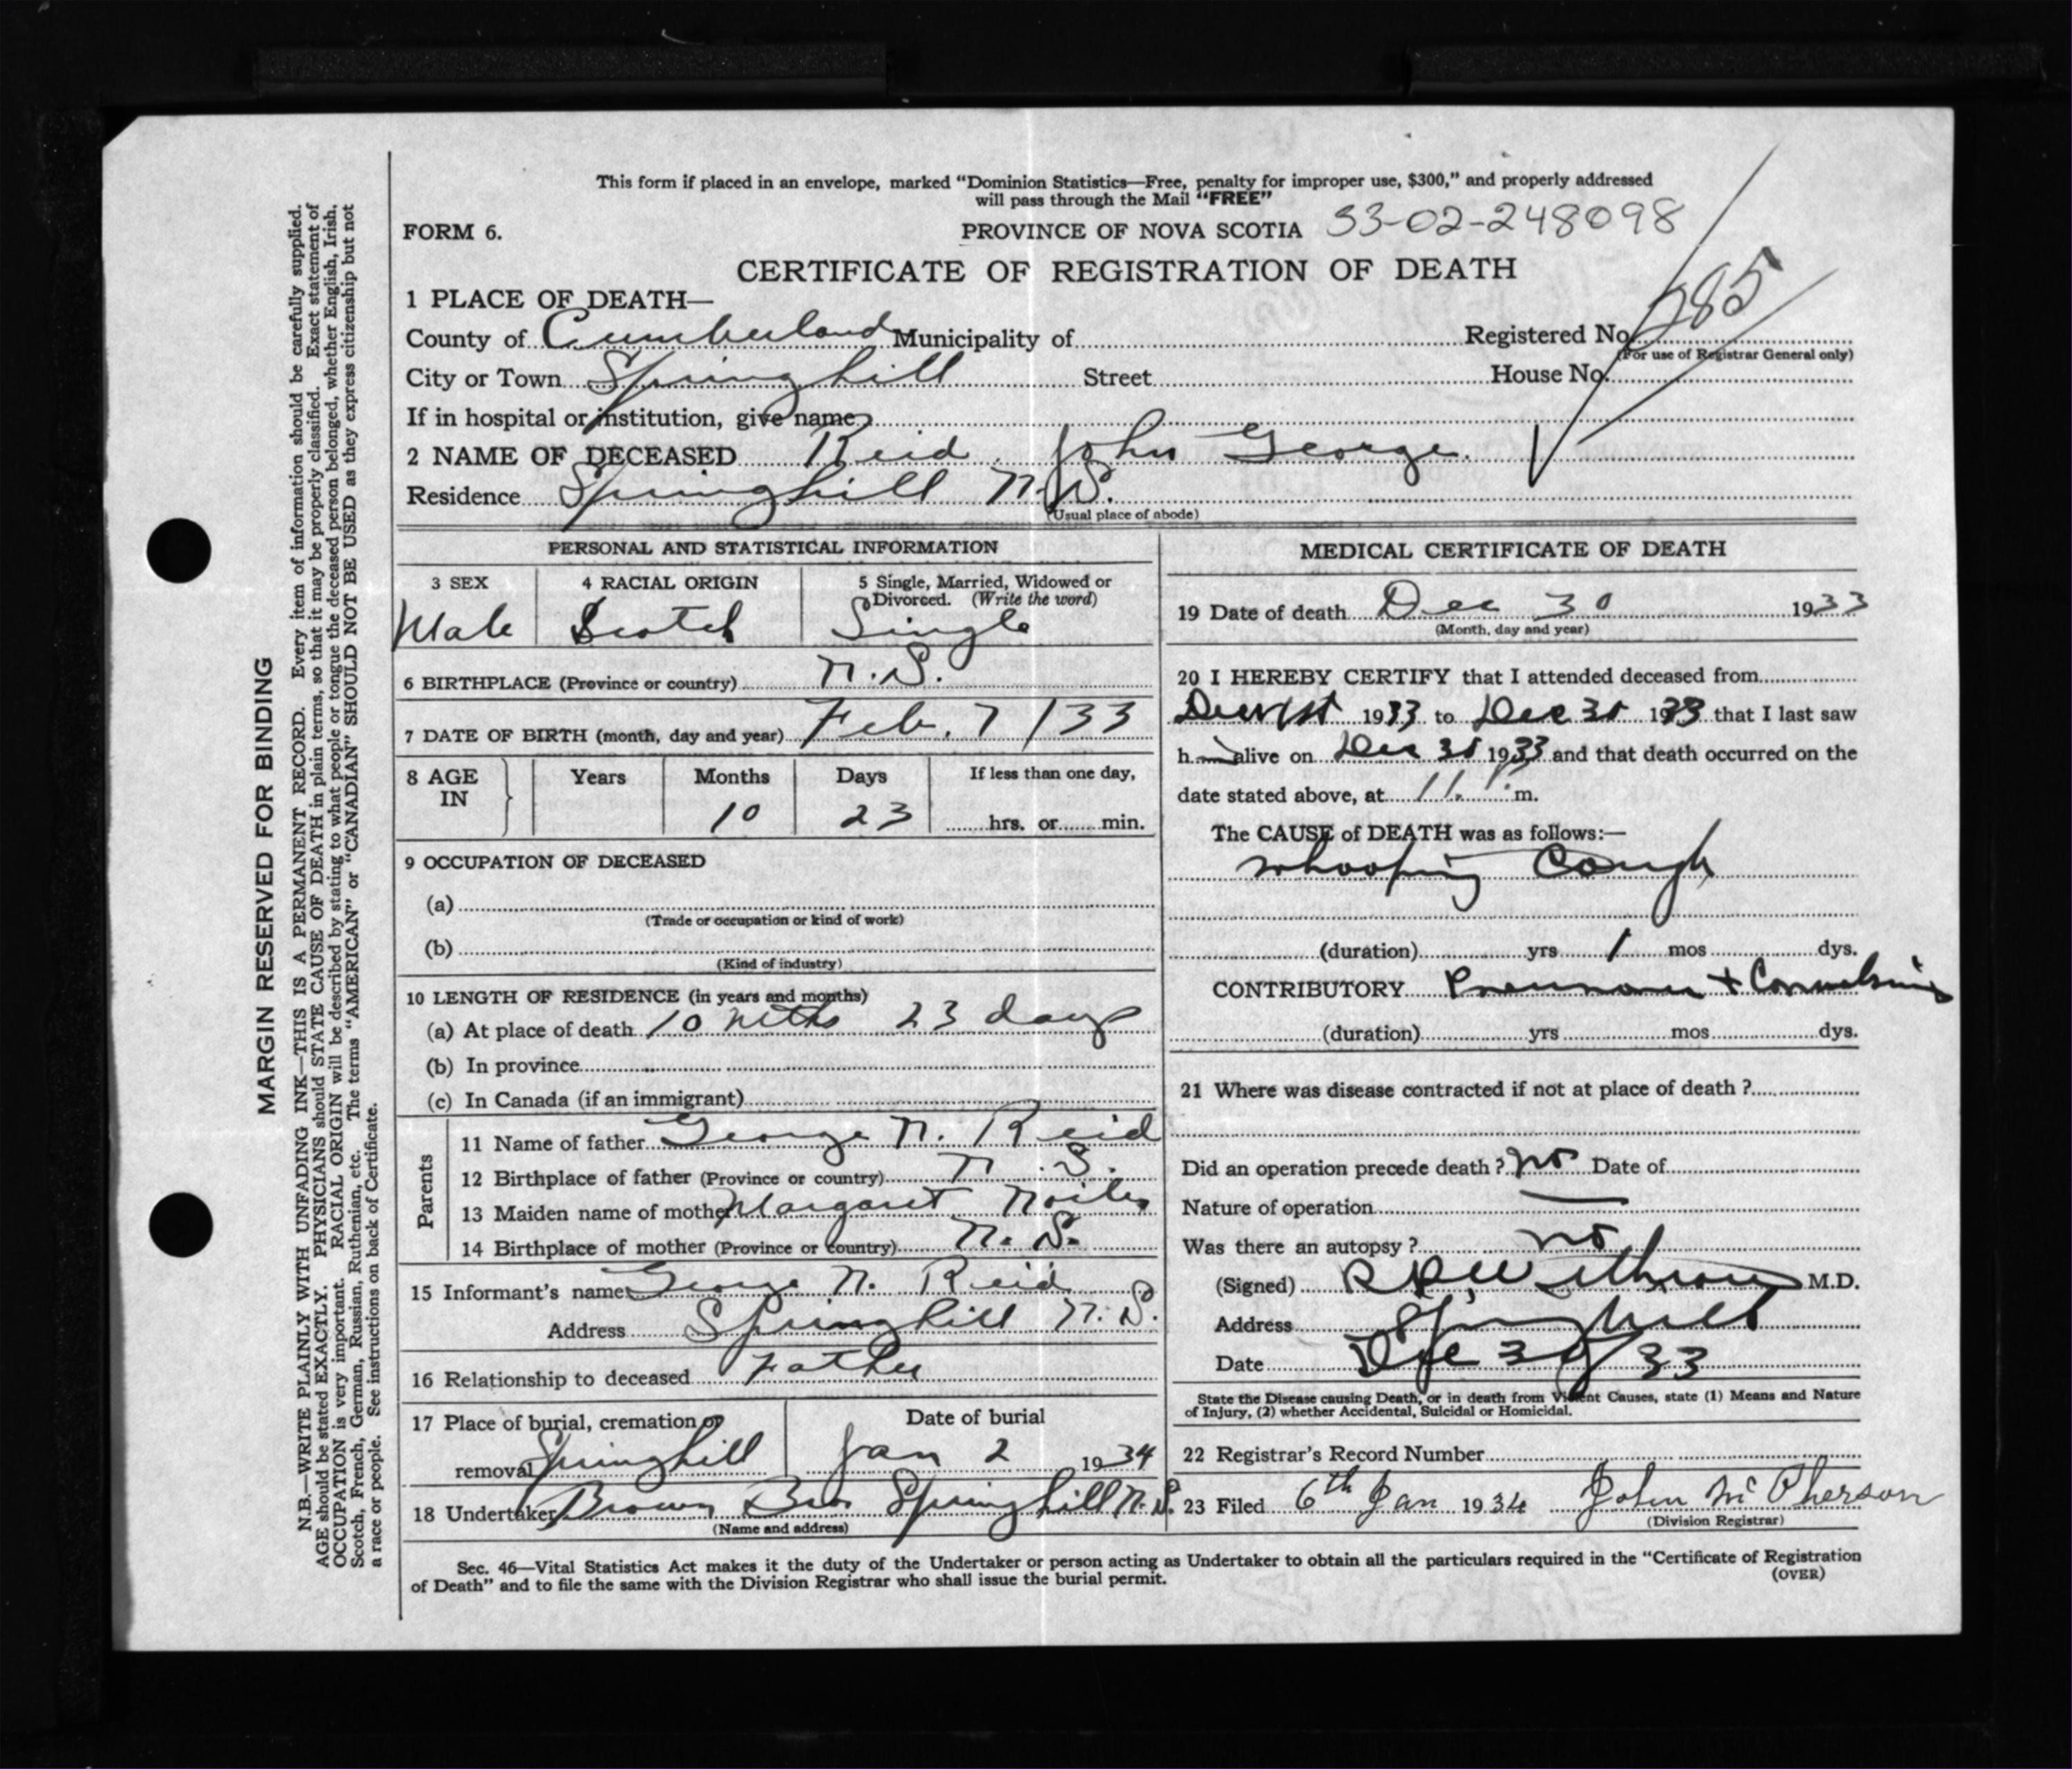 This form if placed in an envelope, marked "Dominion Statistics—Free, penalty for improper use, $300," and properly addressed
will pass through the Mail "FREE"
FORM 6.
PROVINCE OF NOVA SCOTIA 33-02-248098
CERTIFICATE OF REGISTRATION OF DEATH
1 PLACE OF DEATH—
County of Cumberland Municipality of Registered No. 285
(For use of Registrar General only)
City or Town Springhill Street House No.
If in hospital or institution, give name
2 NAME OF DECEASED Reid John George.
Residence Springhill N.S.
(Usual place of abode)
PERSONAL AND STATISTICAL INFORMATION
3 SEX 4 RACIAL ORIGIN 5 Single, Married, Widowed or
Divorced. (Write the word)
Male Scotch Single
6 BIRTHPLACE (Province or country) N.S.
7 DATE OF BIRTH (month, day and year) Feb. 7 / 33
8 AGE Years Months Days If less than one day,
IN 10 23 hrs. or min.
9 OCCUPATION OF DECEASED
(a)
(Trade or occupation or kind of work)
(b)
(Kind of industry)
10 LENGTH OF RESIDENCE (in years and months)
(a) At place of death 10 mths 23 days
(b) In province
(c) In Canada (if an immigrant)
Parents
11 Name of father George N. Reid
12 Birthplace of father (Province or country) N.S.
13 Maiden name of mother Margaret Noiles
14 Birthplace of mother (Province or country) N.S.
15 Informant's name George N. Reid
Address Springhill N.S.
16 Relationship to deceased Father
17 Place of burial, cremation or Date of burial
removal Springhill Jan 2 1934
18 Undertaker Brown Bros Springhill N.S.
(Name and address)
MEDICAL CERTIFICATE OF DEATH
19 Date of death Dec 30 1933
(Month, day and year)
20 I HEREBY CERTIFY that I attended deceased from
1933 to Dec 30 1933 that I last saw
h alive on Dec 30 1933 and that death occurred on the
date stated above, at 11 m.
The CAUSE of DEATH was as follows:—
Whooping Cough
(duration) yrs 1 mos dys.
CONTRIBUTORY Pneumonia + Convulsions
(duration) yrs mos dys.
21 Where was disease contracted if not at place of death?
Did an operation precede death? no Date of
Nature of operation —
Was there an autopsy? no
(Signed) M.D.
Address Springhill
Date Dec 30/33
State the Disease causing Death, or in death from Violent Causes, state (1) Means and Nature
of Injury, (2) whether Accidental, Suicidal or Homicidal.
22 Registrar's Record Number
23 Filed 6th Jan 1934 John McPherson
(Division Registrar)
Sec. 46—Vital Statistics Act makes it the duty of the Undertaker or person acting as Undertaker to obtain all the particulars required in the "Certificate of Registration
of Death" and to file the same with the Division Registrar who shall issue the burial permit.
(OVER)
MARGIN RESERVED FOR BINDING
N.B.—WRITE PLAINLY WITH UNFADING INK—THIS IS A PERMANENT RECORD. Every item of information should be carefully supplied.
AGE should be stated EXACTLY. PHYSICIANS should STATE CAUSE OF DEATH in plain terms, so that it may be properly classified. Exact statement of
OCCUPATION is very important. RACIAL ORIGIN will be described by stating to what people or tongue the deceased person belonged, whether English, Irish,
Scotch, French, German, Russian, Ruthenian, etc. The terms "AMERICAN" or "CANADIAN" SHOULD NOT BE USED as they express citizenship but not
a race or people. See instructions on back of Certificate.